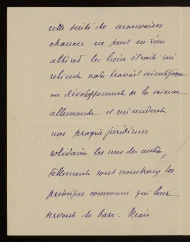 cette suite de mauvaises
chances ne peut en rien
altérer les liens étroits qui
relient notre travail scientifique
au développement de la science
allemande et qui rendent
nos progrès juridiques
solidaires les uns des autres,
tellement sont nombreux les
principes communs qui leur
servent de base. Mais